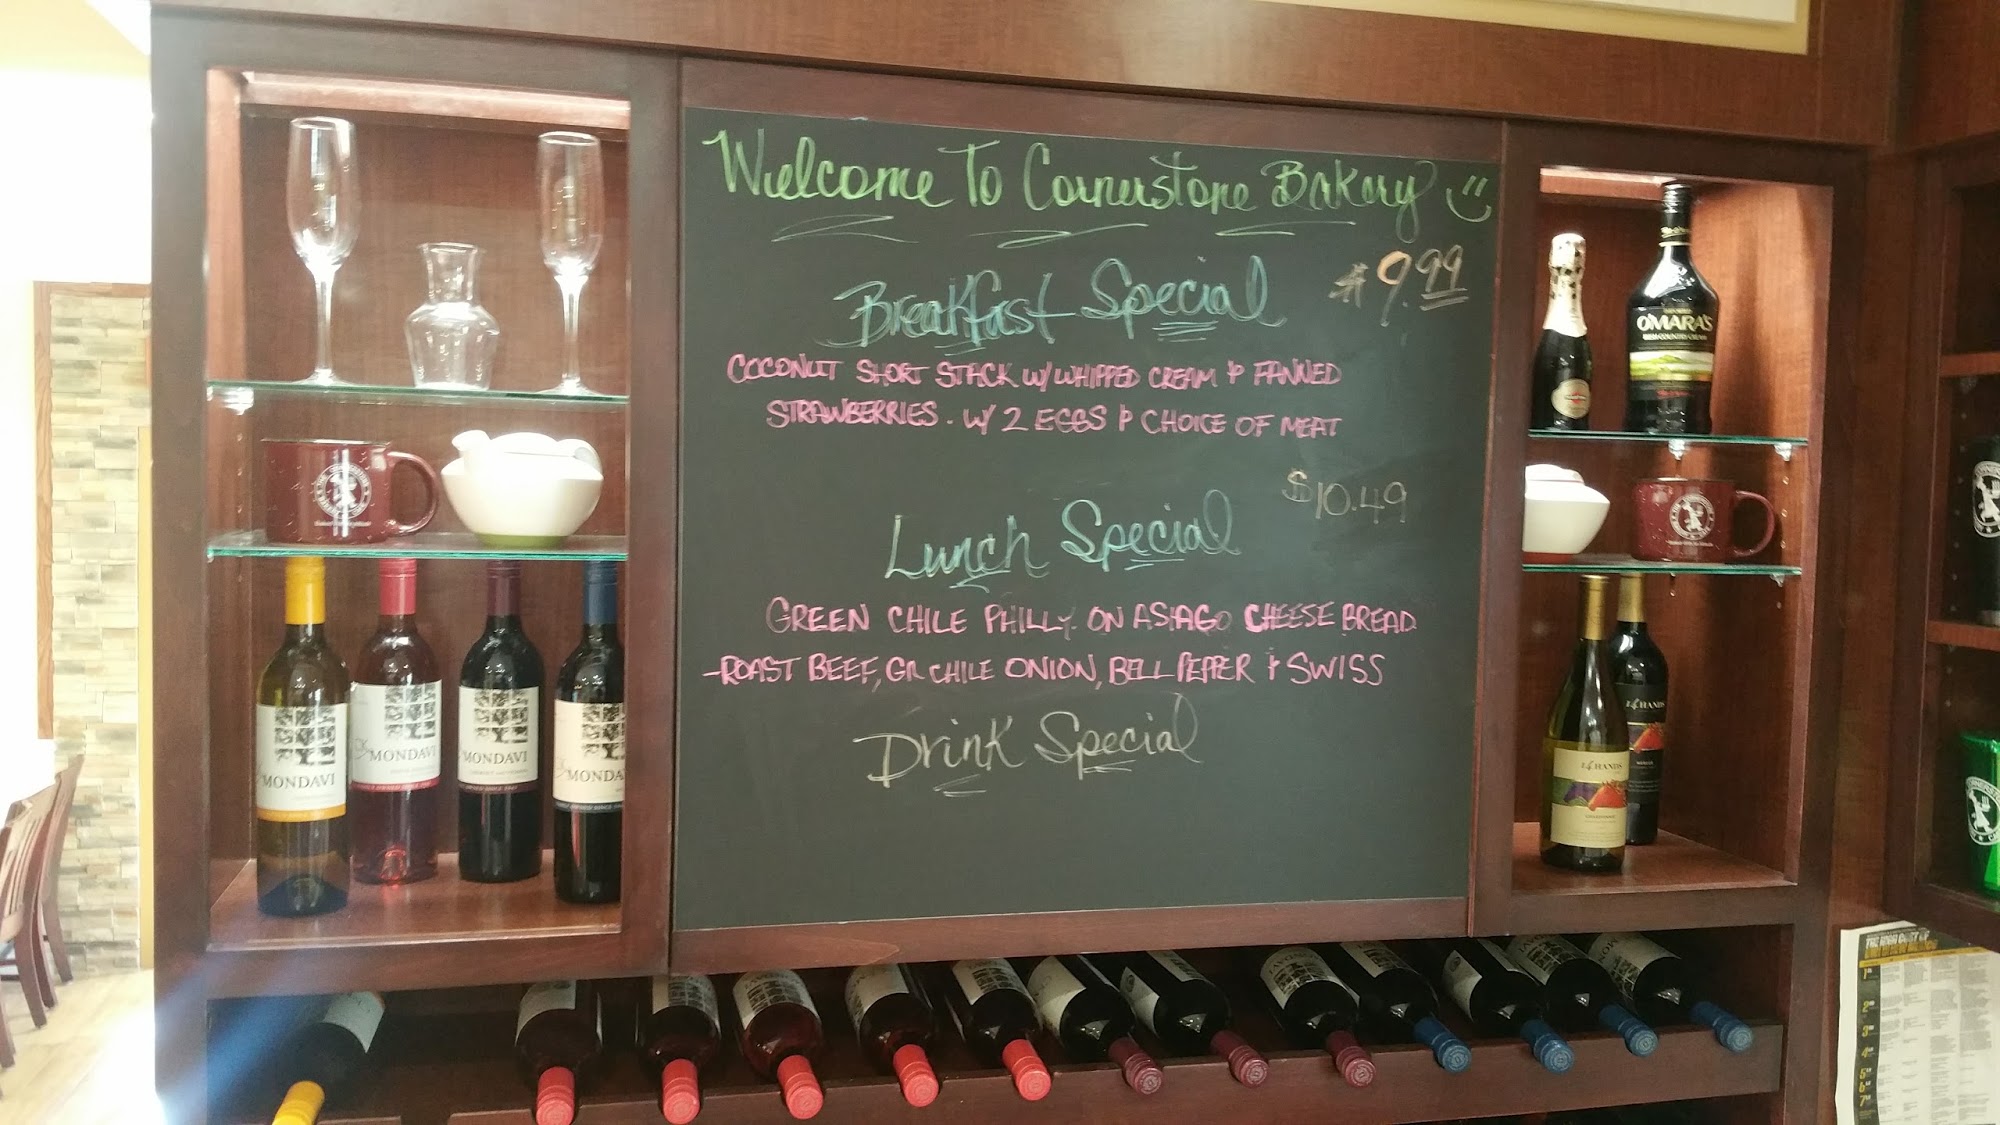 Welcome To Cornerstone Bakery
$9.99
Breakfast Special
COCONUT SHORT STACK W/ WHIPPED CREAM & FANNED
STRAWBERRIES. W/ 2 EGGS & CHOICE OF MEAT
$10.49
Lunch Special
GREEN CHILE PHILLY ON ASIAGO CHEESE BREAD
-ROAST BEEF, GR CHILE ONION, BELL PEPPER & SWISS
Drink Special
MONDAVI
MONDAVI
MONDAVI
MONDA
O'MARA'S
14 HANDS
14 HANDS